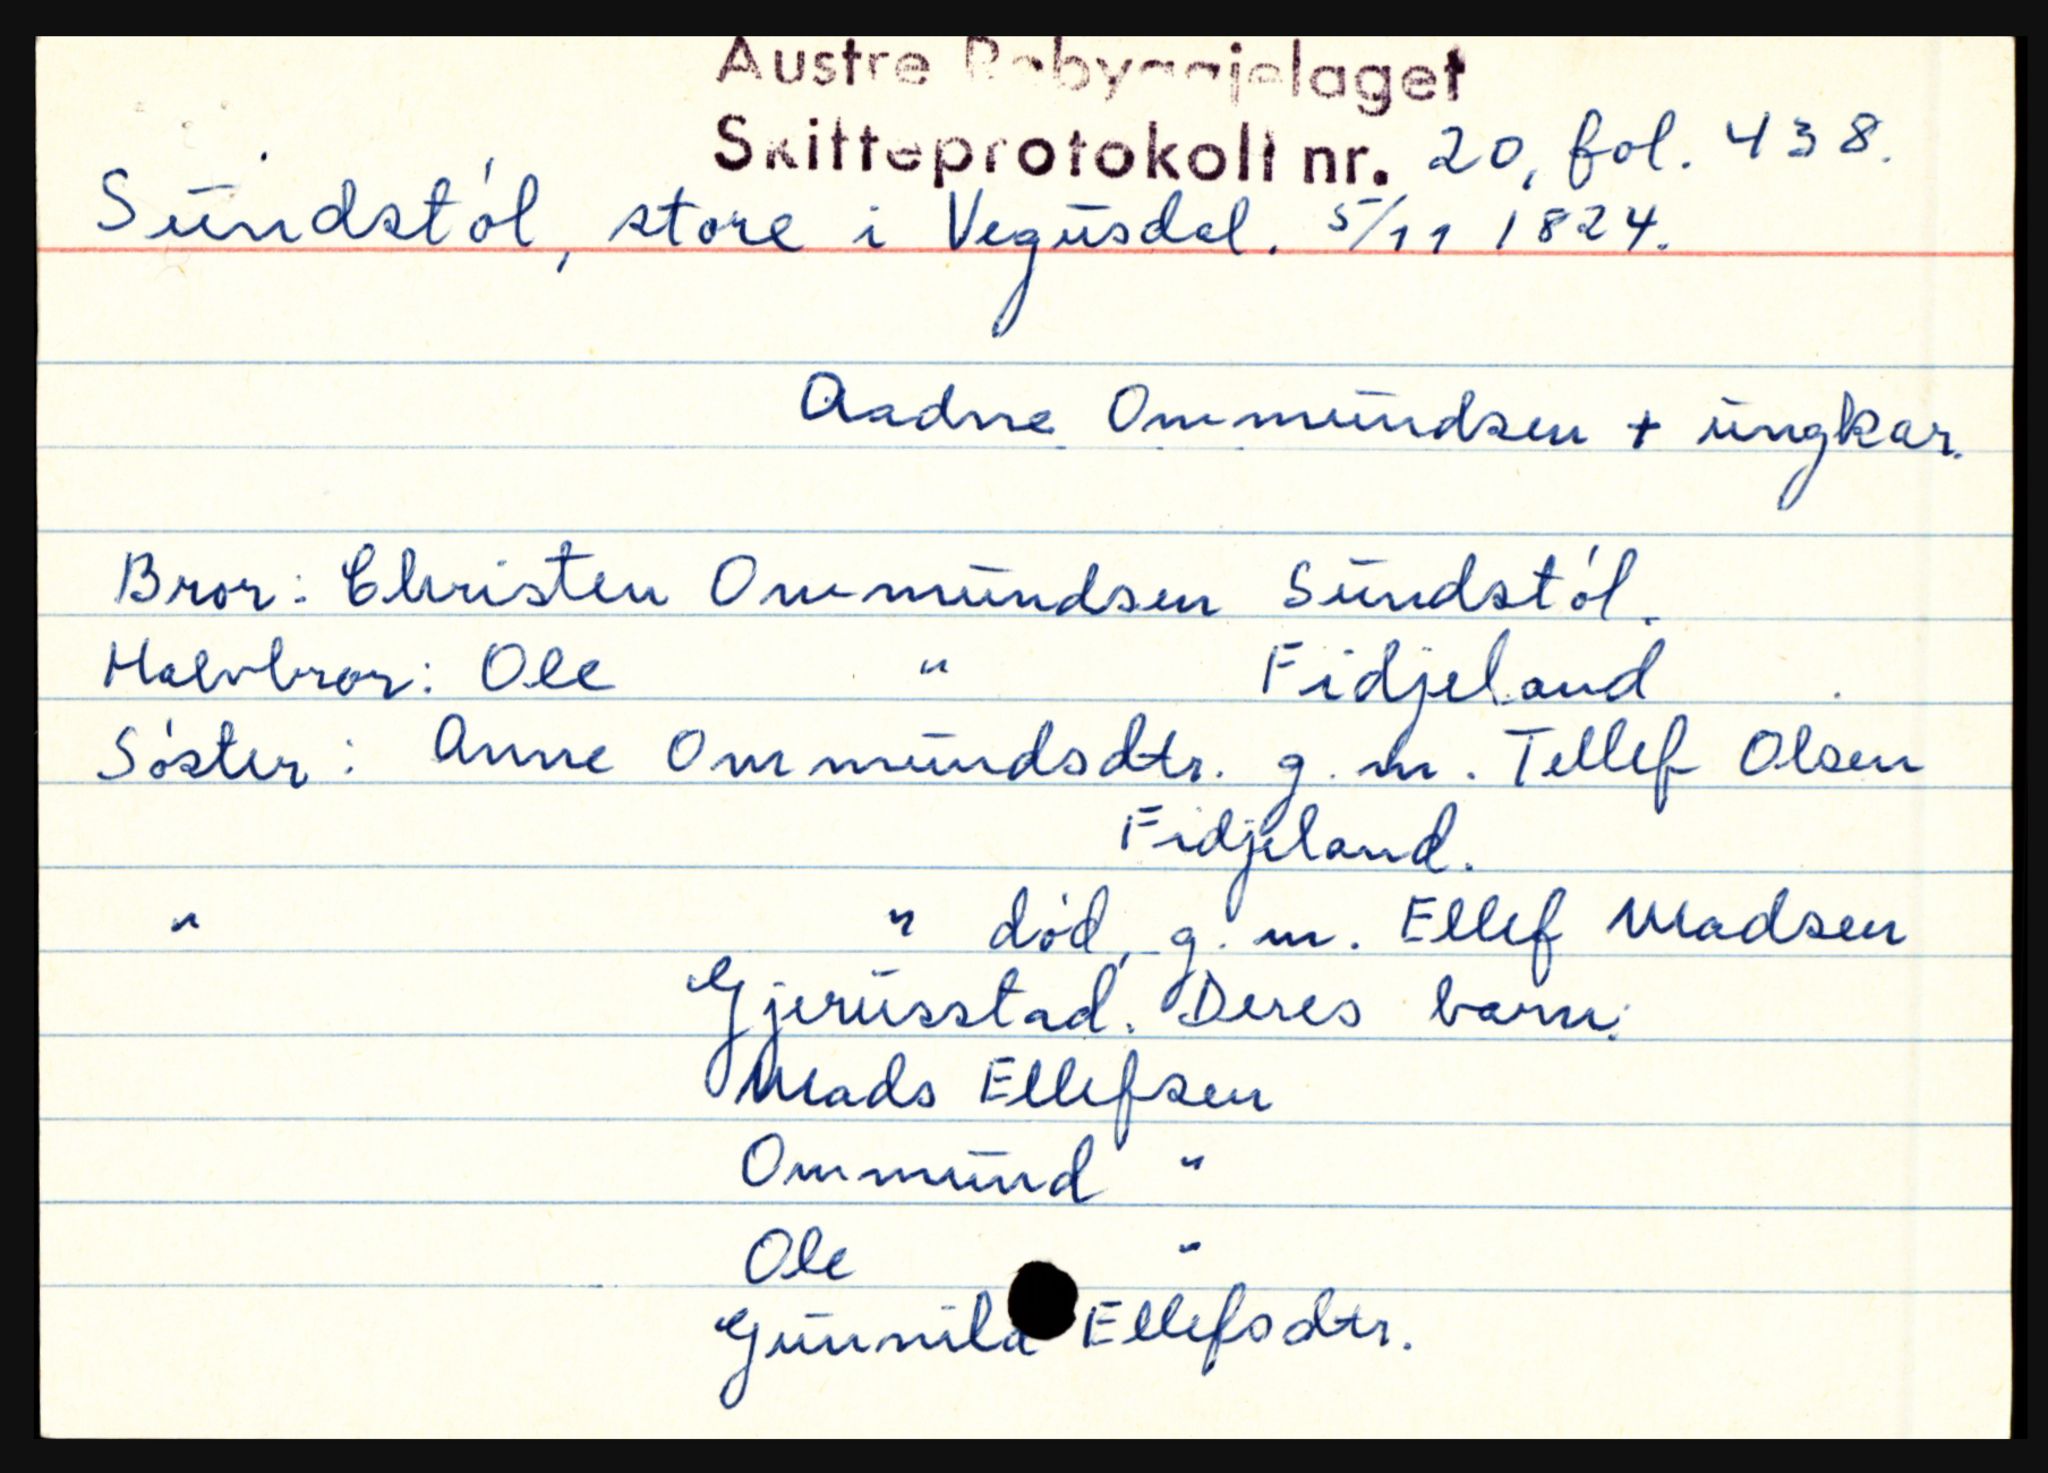 Austre Rabyggjelaget
Skifteprotokoll nr. 20, fol. 438.
Sundstøl, store i Vegusdal. 5/11 1824.
Aadne Ommundsen + ungkar.
Bror: Christen Ommundsen Sundstøl.
Halvbror: Ole " Fidjeland
Søster: Anne Ommundsdtr. g.m. Tellef Olsen
Fidjeland.
" " død, g.m. Ellef Madsen
Gjerusstad. Deres barn:
Mads Ellefsen
Ommund "
Ole "
Gunnild Ellefsdtr.